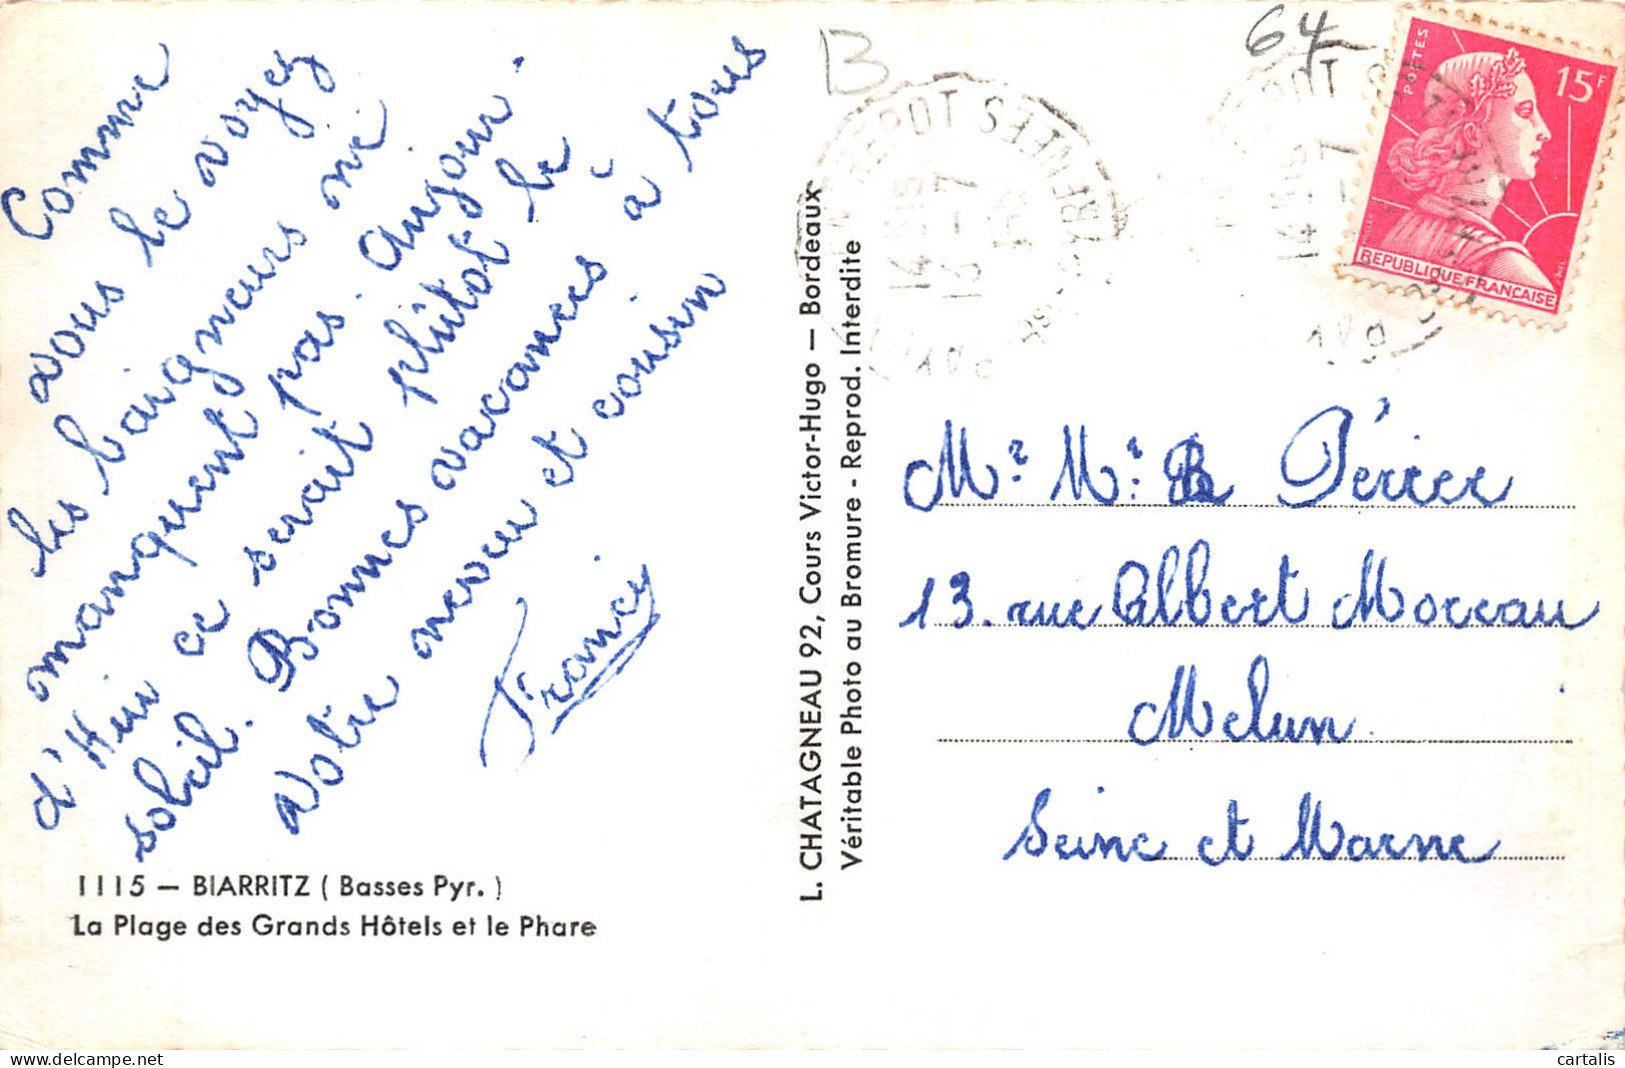 Comme
vous le voyez
les baigneurs ne
manquent pas. Aujour-
d'Hui ce serait plûtot le
soleil. Bonnes vacances à tous
Votre neveu et cousin
Francis
1115 – BIARRITZ ( Basses Pyr. )
La Plage des Grands Hôtels et le Phare
L. CHATAGNEAU 92, Cours Victor-Hugo – Bordeaux
Véritable Photo au Bromure - Reprod. Interdite
B
64
POSTES
15F
REPUBLIQUE FRANÇAISE
14 H15
Mr Mr B Périer
13. rue Albert Moreau
Melun.
Seine et Marne
cartalis